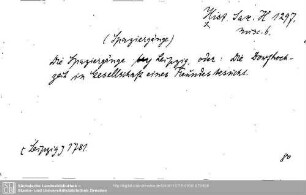 Hist. Sax. H 1297,
misc. 6.
(Spaziergänge)
Die Spaziergänge Leipzig, oder: Die Dorfhoch-
zeit in Gesellschaft eines Freundes besucht.
[Leipzig] 1781.
8°
Sächsische Landesbibliothek -
Staats- und Universitätsbibliothek Dresden